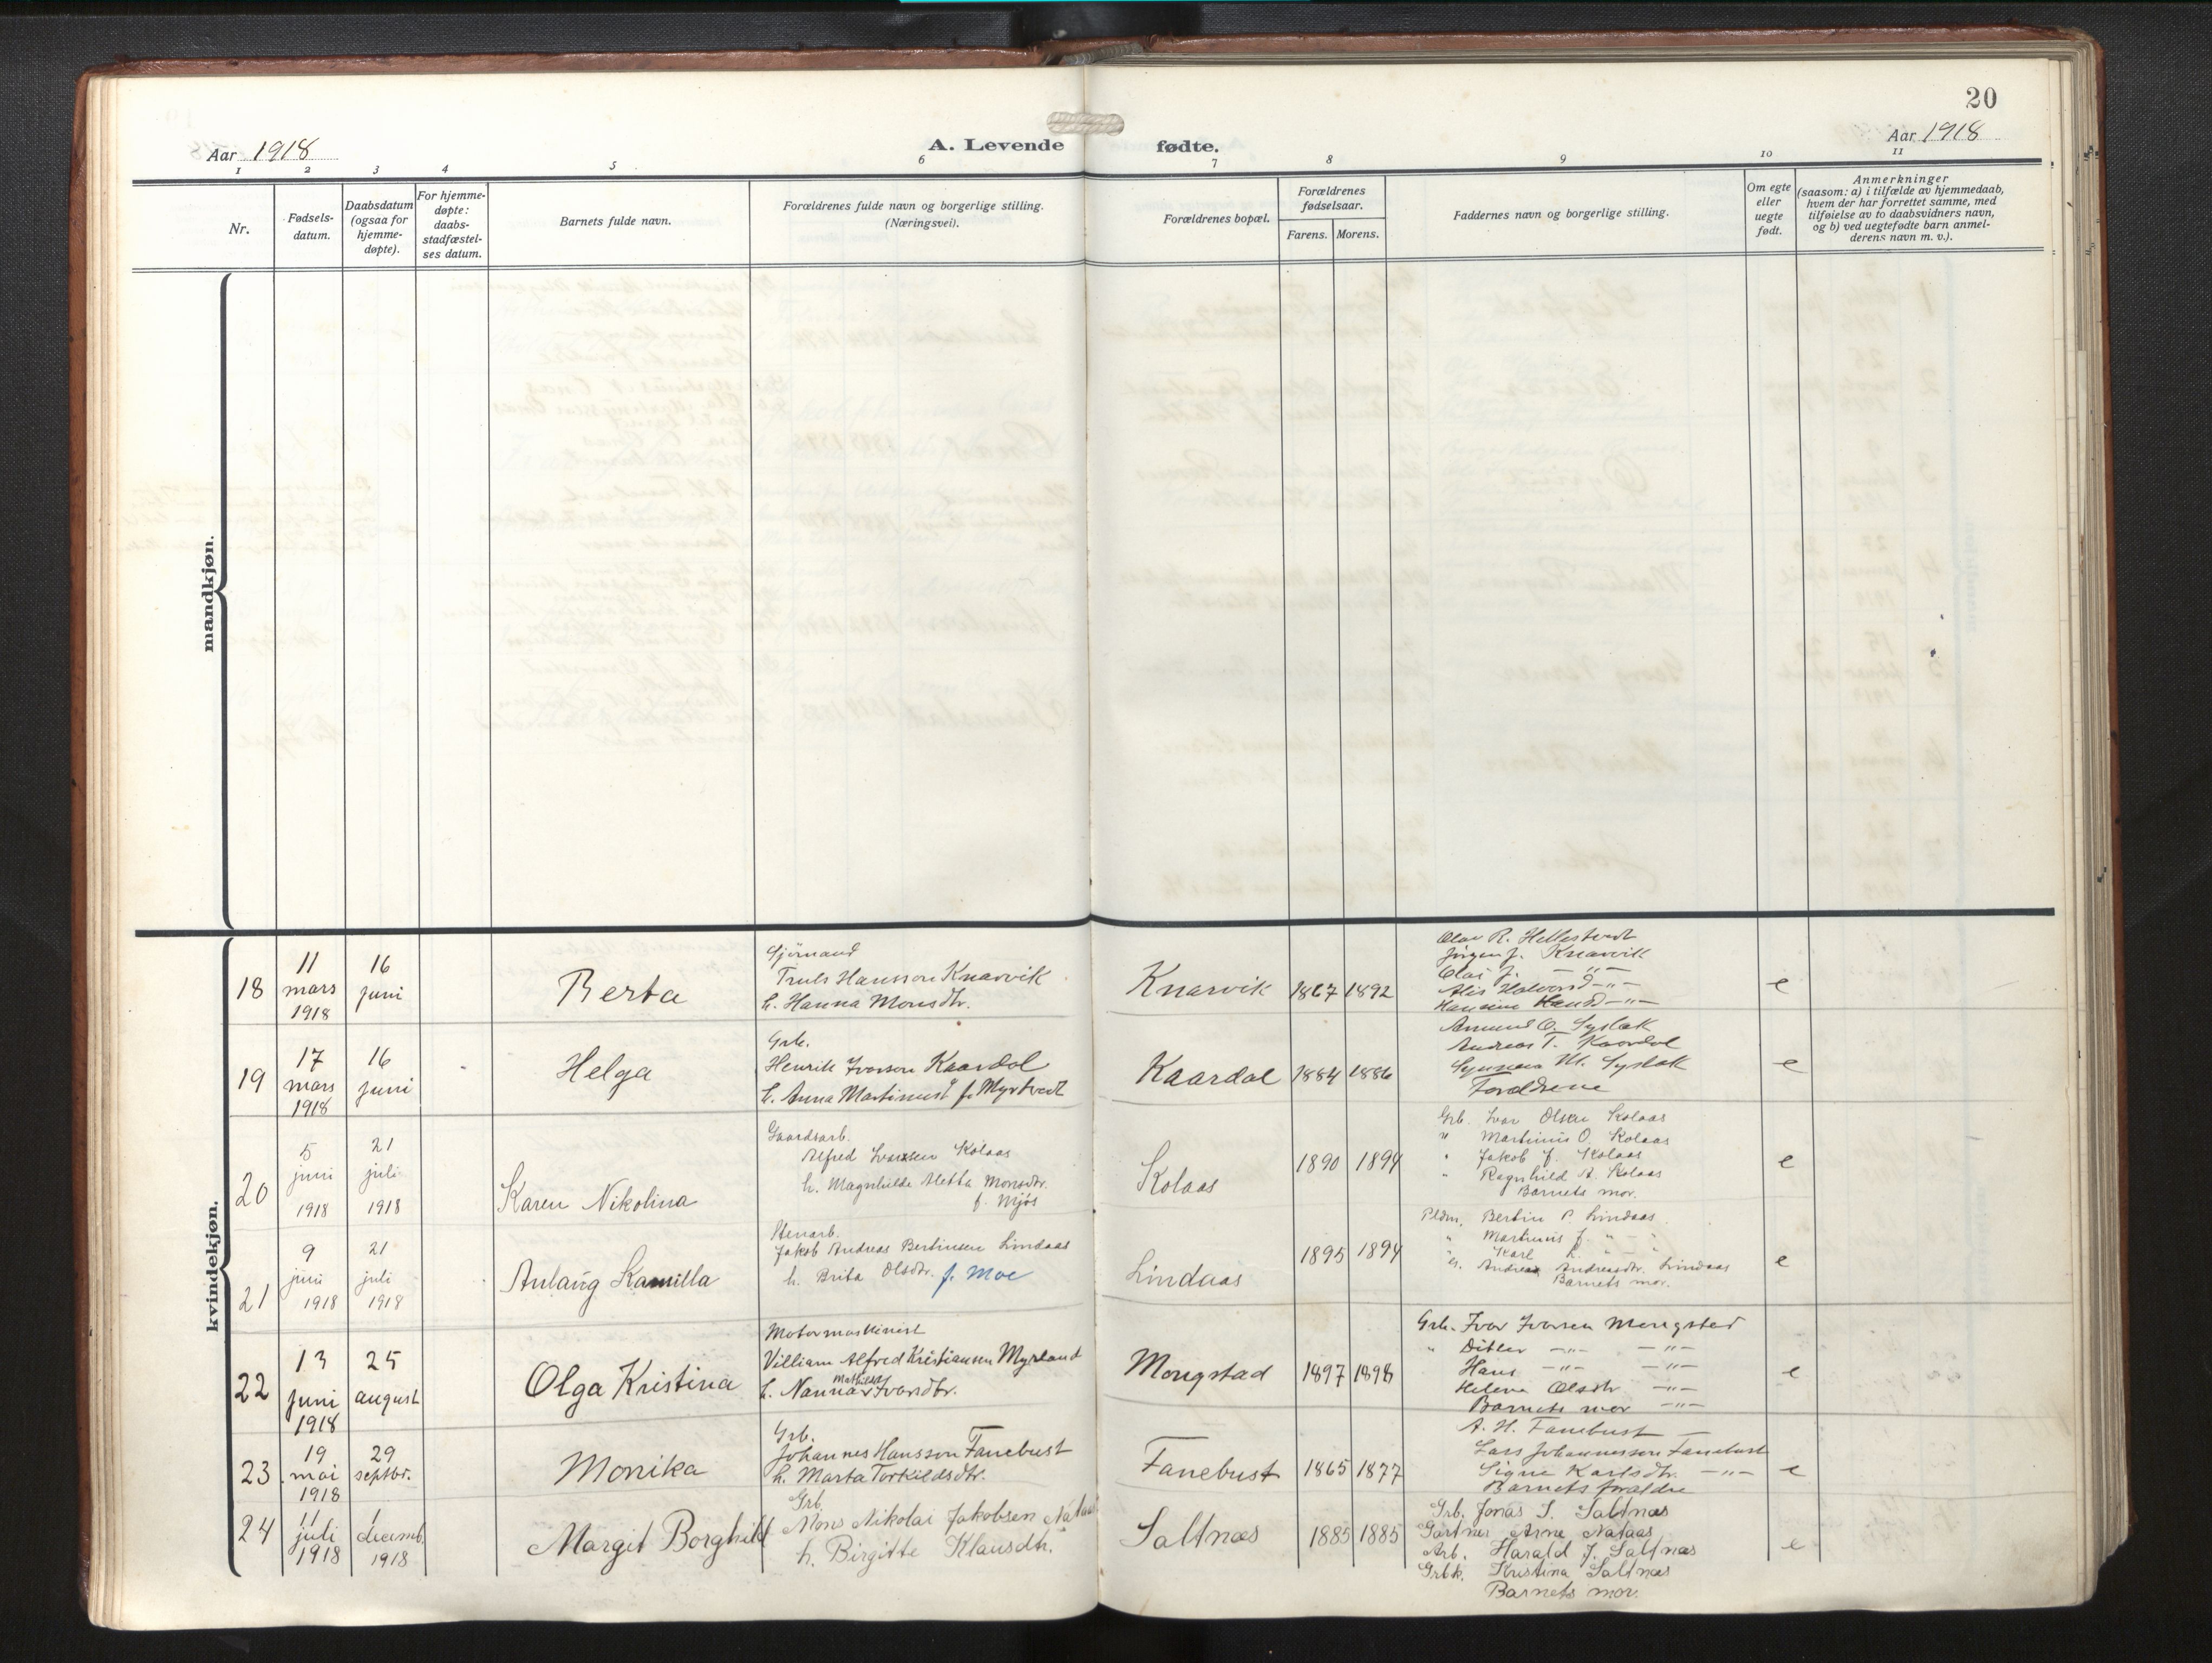 20
Aar 1918
A. Levende fødte.
Aar 1918
1 2 3 4 5 6 7 8 9 10 11
Nr.
Fødsels-
datum.
Daabsdatum
(ogsaa for
hjemme-
døpte).
For hjemme-
døpte:
daabs-
stadfæstel-
ses datum.
Barnets fulde navn.
Forældrenes fulde navn og borgerlige stilling.
(Næringsvei).
Forældrenes bopæl.
Forældrenes
fødselsaar.
Farens. Morens.
Faddernes navn og borgerlige stilling.
Om egte
eller
uegte
født.
Anmerkninger
(saasom: a) i tilfælde av hjemmedaab,
hvem der har forrettet samme, med
tilføielse av to daabsvidners navn,
og b) ved uegtefødte barn anmel-
derens navn m. v.).
mandkjøn.
kvindekjøn.
18
11
mars
1918
16
juni
Berta
Sjömand
Truls Hansson Knarvik
h. Hanna Monsdtr.
Knarvik
1867 1892
Olav R. Hellestvedt
Jörgen J. Knarvik
Olai J. — " —
Halvorsd — " —
Hansine Hansd — " —
e
19
17
mars
1918
16
juni
Helga
Grb.
Henrik Ivarson Kaardal
h. Anna Martinusd f. Myrtvedt
Kaardal
1884 1886
Amund O. Syslak
Andreas T. Kaardal
Synneva M. Syslak
Forældrene
e
20
5
juni
1918
21
juli
1918
Karen Nikolina
Gaardsarb.
Alfred Ivarsen Kolaas
h. Magnhilde Aletta Monsdtr.
f. Mjøs
Kolaas
1890 1894
Grb. Ivar Olsen Kolaas
" Martinus O. Kolaas
" Jakob J. Kolaas
" Ragnhild A. Kolaas
Barnets mor.
e
21
9
juni
1918
21
juli
1918
Aulaug Kamilla
Stenarb.
Jakob Andreas Bertinsen Lindaas
h. Brita Olsdtr. f. Moe
Lindaas
1895 1894
Pldm. Bertin P. Lindaas
" Martinus J. " — "
" Karl L. " — "
Andrea Andreasdtr. Lindaas
Barnets mor.
e
22
13
juni
1918
25
august
Olga Kristina
Motormaskinist
Villiam Alfred Kristiansen Myrland
Mathilde
h. Nanna Ivarsdtr.
Mongstad
1897 1898
Grb. Ivar Ivarsen Mongstad
" Ditlev — " — — " —
Hans — " — — " —
Helena Olsdtr — " —
Barnets mor — " —
e
23
19
mai
1918
29
septbr.
Monika
Grb.
Johannes Hansson Fanebust
h. Marta Torkildsdtr.
Fanebust
1865 1877
A. H. Fanebust
Lars Johannesson Fanebust
Signe Karlsdtr. — " —
Barnets foraldre
e
24
11
juli
1918
1
decemb.
1918
Margit Borghild
Grb.
Mons Nikolai Jakobsen Nataas
h. Birgitte Klausdtr.
Saltnæs
1885 1885
Grb. Jonas I. Saltnæs
Gartner Arne Nataas
Arb. Harald J. Saltnæs
Grbk. Kristina Saltnæs
Barnets mor.
e